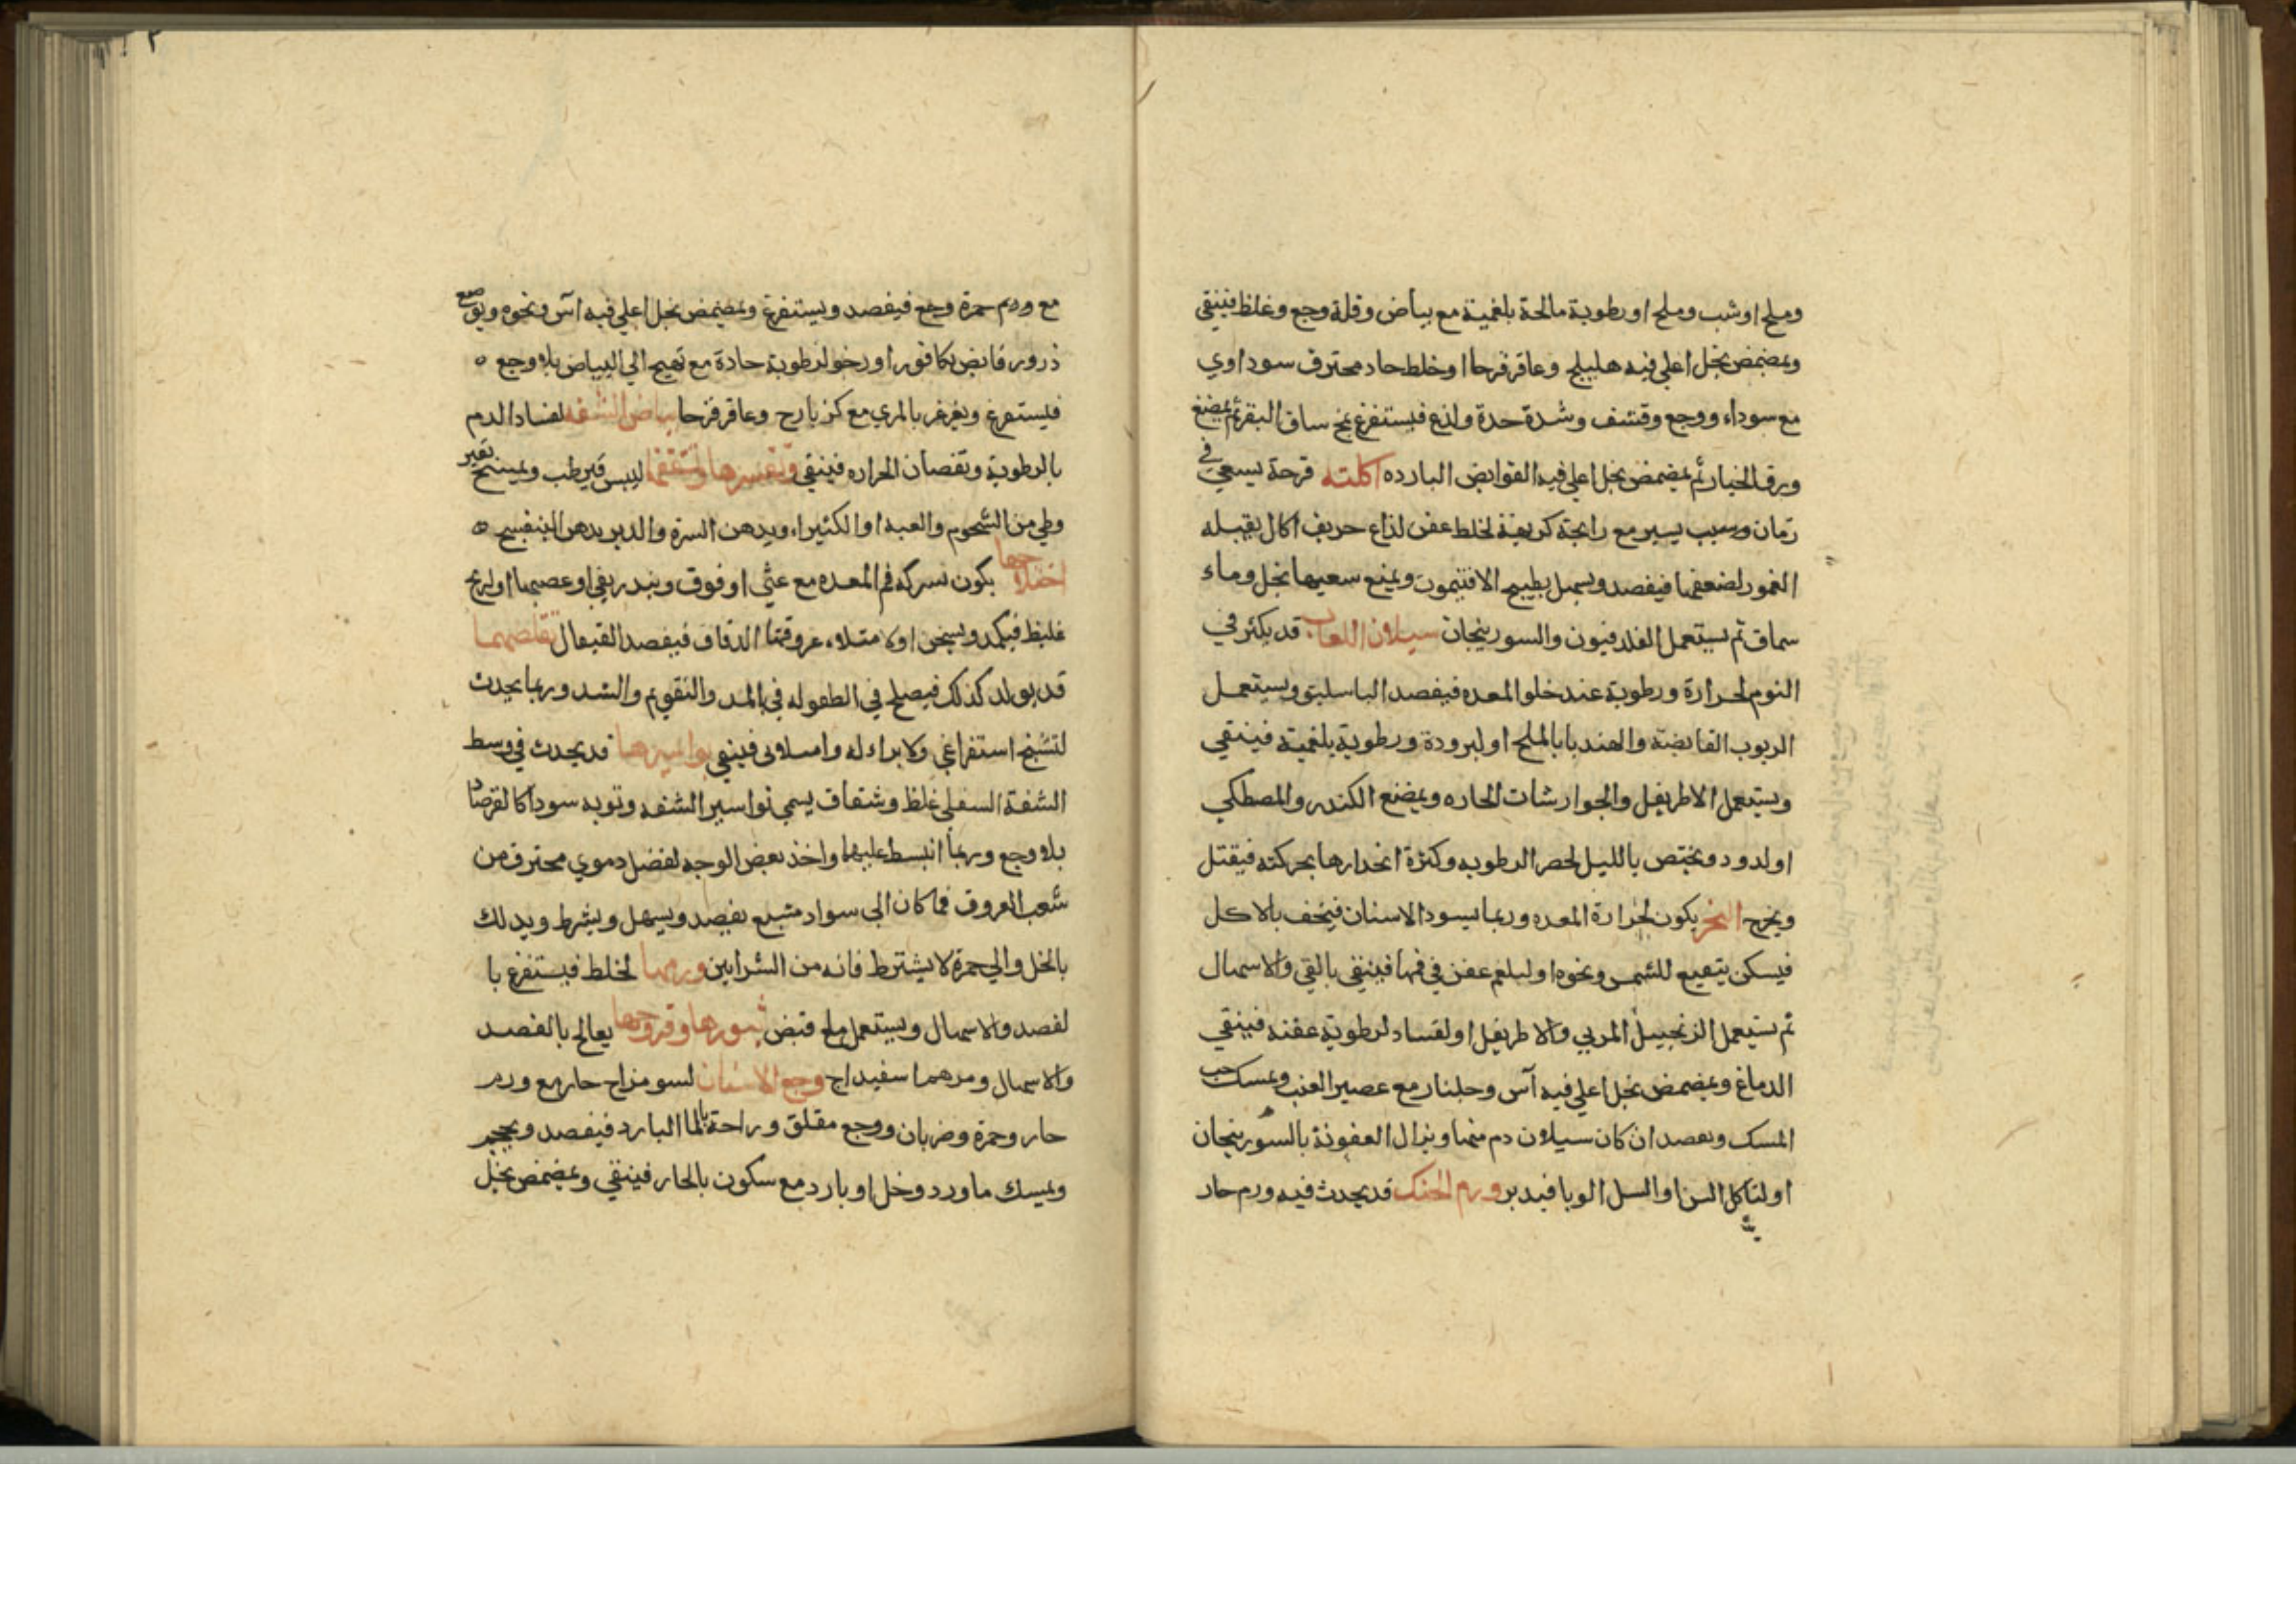 وملح اوشب وملح اورطوبة مالحة بلغمية مع بياض وقلة وجع وغلظ فينقي
ويمضمض بخل اغلي فيه هليلج وعاقرقرحا اوخلط حاد محترف سوداوي
مع سوداء ووجع وقشف وشدة حدة ولذع فيستفرغ بمخ ساق البقر ثم يمضغ
ورق الخيار ثم يمضمض بخل اغلي فيه القوابض البارده اكلته قرحة يسعي في
زمان وسبب يسير مع رايحة كريهة لخلط عفن لذاع حريف اكال يقبله
الغمور لضعفها فيفصد ويسهل بطبيخ الافتيمون ويمنع سعيها بخل وماء
سماق ثم يستعمل الفلدفيون والسورنجان سيلان اللعاب قد يكثر في
النوم لحرارة ورطوبة عند خلو المعده فيفصد الباسليق ويستعمل
الربوب القابضة والهندبا بالملح اولبرودة ورطوبة بلغمية فينقي
ويستعمل الاطريفل والجوارشات الحاره ويمضغ الكندر والمصطكي
اولدود ويختص بالليل لحصر الرطوبه وكثرة انحدارها بحركته فيقتل
ويخرج البخر يكون لحرارة المعده وربما يسود الاسنان فيخف بالاكل
فيسكن بنقيع المشمس ونحوه اولبلغم عفن في فمها فينقي بالقي والاسهال
ثم يستعمل الزنجبيل المربي والاطريفل اولفساد لرطوبة عفنه فينقي
الدماغ ويمضمض بخل اغلي فيه آس وجلنار مع عصير العنب ويمسك حب
المسك ويفصد ان كان سيلان دم منها ويزال العفونة بالسورنجان
اولتاكل السن اوالسل الوبا فيدبر ورم الحنك قد يحدث فيه ورم حار
٢
مع ورم حمرة وجع فيفصد ويستفرغ ويمضمض بخل اغلي فيه آس ونحوه ويوضع
ذرور قابض بكافور اورخو لرطوبة حادة مع تهيج الي البياض بلا وجع ه
فيستفرغ ويغرغر بالمري مع كزيارح وعاقرقرحا بياض الشفه لفساد الدم
بالرطوبة ونقصان الحراره فينقي وتقشيرها وتشققها لليبس فيرطب ويمسح بقير
وطي من الشحوم والعبه اوالكثيراء ويدهن السرة والدبر بدهن البنفسج ه
اختلاجها يكون بسركه فم المعده مع غثي اوفوق وينذر بقي اوعصبها اولريح
غليظ فيكمد ويسخن اولامتلاء عروقها الدقاق فيفصد القيفال تقلصهما
قد يولد كذلك فيصلح في الطفوله في بالمد والتقويم والشد وربما يحدث
لتشنج استفراغي ولا براء له وامتلاي فينقي بواسيرها قد يحدث في وسط
الشفة السفلي غلظ وشقاق يسمي نواسير الشفه وتوبه سوداكالقرصاد
بلا وجع وربما انبسط عليها واخذ بعض الوجه لفضل دموي محترق من
شعب العروق فما كان الي سواد متبع يفصد ويسهل ويشرط ويدلك
بالخل والي حمرة لا يشترط فانه من الشرايين ورمها لخلط فيستفرغ با
لفصد والاسهال ويستعمل ملح قبض ثبورها وقروحها يعالج بالفصد
والاسهال ومرهم اسفيداج وجع الاسنان لسو مزاج حار مع ورم
حار وحمرة وضربان ووجع مقلق وراحة بالما البارد فيفصد ويحجم
ويمسك ماورد وخل اوبارد مع سكون بالحار فينقي ويمضمض بخل